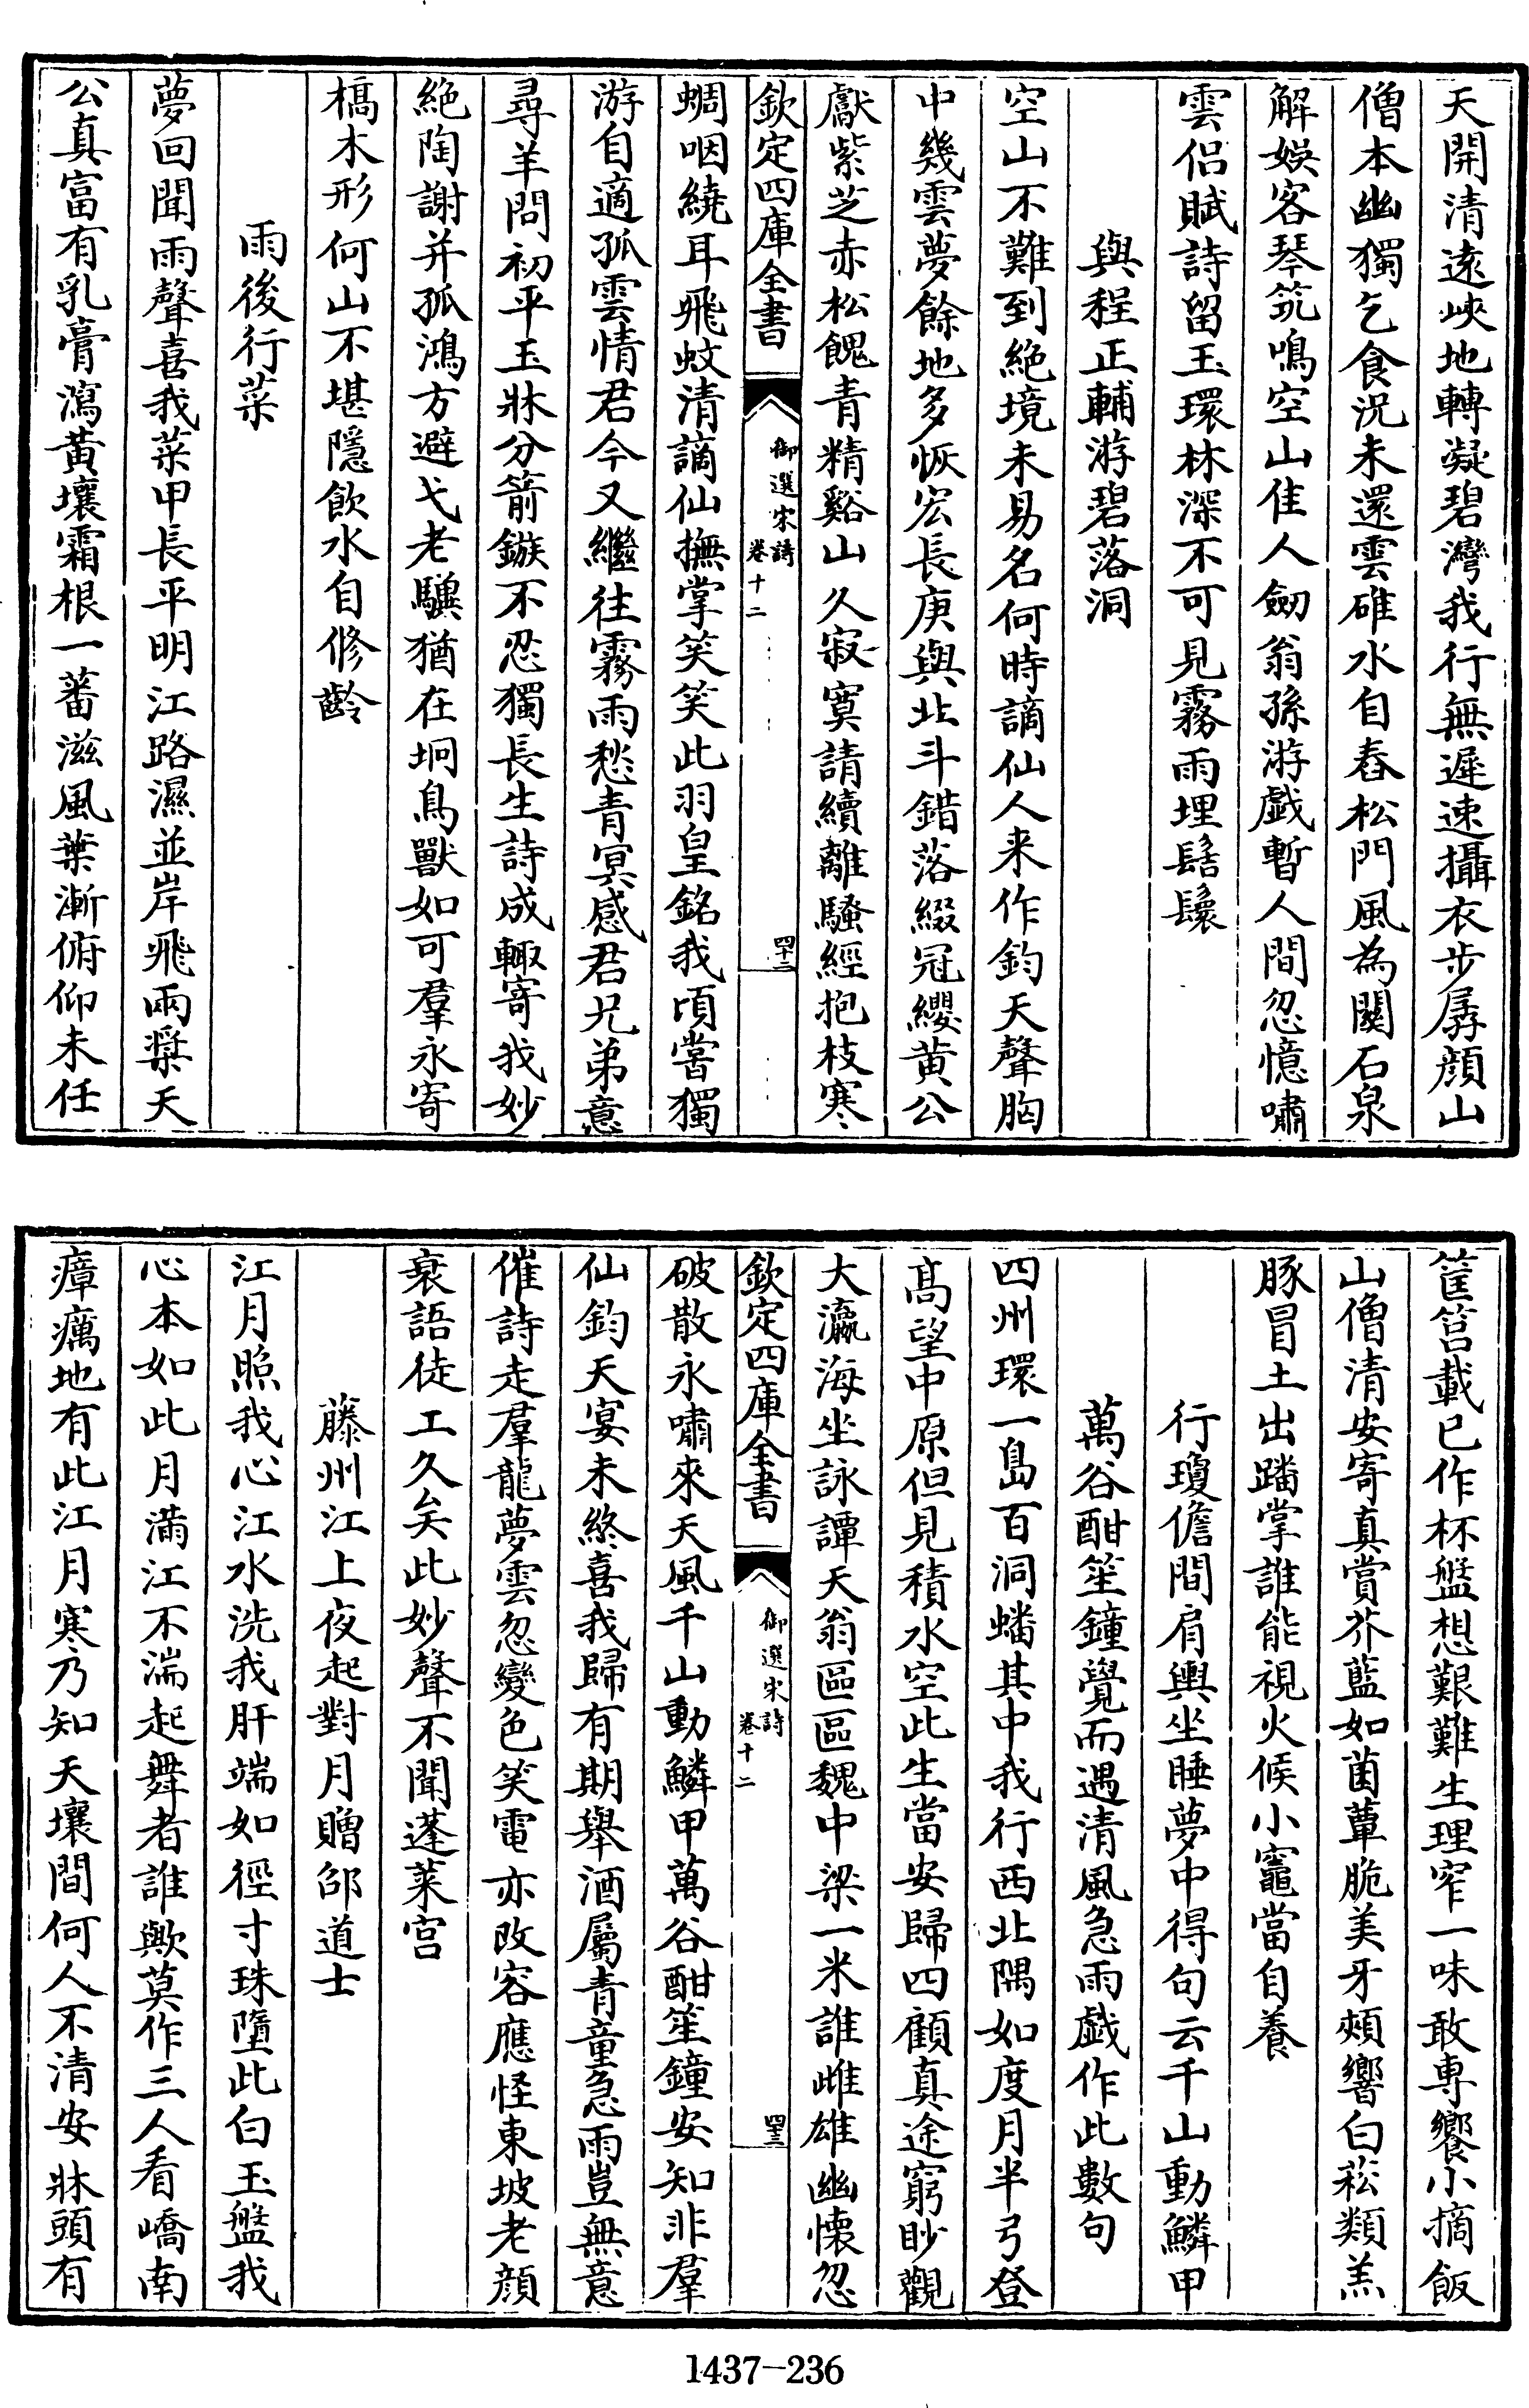 天開清遠峽地轉凝碧灣我行無遲速攝衣步孱顔山
僧本幽獨乞食況未還雲碓水自舂松門風為關石泉
解娛客琴筑鳴空山佳人劒翁孫游戲暫人間忽憶嘯
雲侶賦詩留玉環林深不可見霧雨埋髻鬟
與程正輔游碧落洞
空山不難到絶境未易名何時謫仙人来作鈞天聲胸
中幾雲夢餘地多恢宏長庚與北斗錯落綴冠纓黄公
獻紫芝赤松餽青精谿山久寂寞請續離騷經抱枝寒
欽定四庫全書
御選宋詩
卷十二
四十二
蜩咽繞耳飛蚊清謫仙撫掌笑笑此羽皇銘我頃嘗獨
游自適孤雲情君今又繼往霧雨愁青冥感君兄弟意
尋羊問初平玉牀分箭鏃不忍獨長生詩成輙寄我妙
絶陶謝并孤鴻方避弋老驥猶在坰鳥獸如可羣永寄
槁木形何山不堪隱飲水自修齡
雨後行菜
夢回聞雨聲喜我菜甲長平明江路濕並岸飛兩槳天
公真富有乳膏瀉黄壤霜根一蕃滋風葉漸俯仰未任
筐筥載已作杯盤想艱難生理窄一味敢専饗小摘飯
山僧清安寄真賞芥藍如菌蕈脆美牙頰響白菘類羔
豚冒土出蹯掌誰能視火候小竈當自養
行瓊儋間肩輿坐睡夢中得句云千山動鱗甲
萬谷酣笙鐘覺而遇清風急雨戲作此數句
四州環一島百洞蟠其中我行西北隅如度月半弓登
髙望中原但見積水空此生當安歸四顧真途窮眇觀
大瀛海坐詠譚天翁區區魏中梁一米誰雌雄幽懐忽
欽定四庫全書
御選宋詩
卷十二
四十三
破散永嘯來天風千山動鱗甲萬谷酣笙鐘安知非羣
仙鈞天宴未終喜我歸有期舉酒屬青童急雨豈無意
催詩走羣龍夢雲忽變色笑電亦改容應怪東坡老顔
衰語徒工久矣此妙聲不聞蓬萊宫
藤州江上夜起對月贈邵道士
江月照我心江水洗我肝端如徑寸珠墮此白玉盤我
心本如此月滿江不湍起舞者誰歟莫作三人看嶠南
瘴癘地有此江月寒乃知天壤間何人不清安牀頭有
1437-236